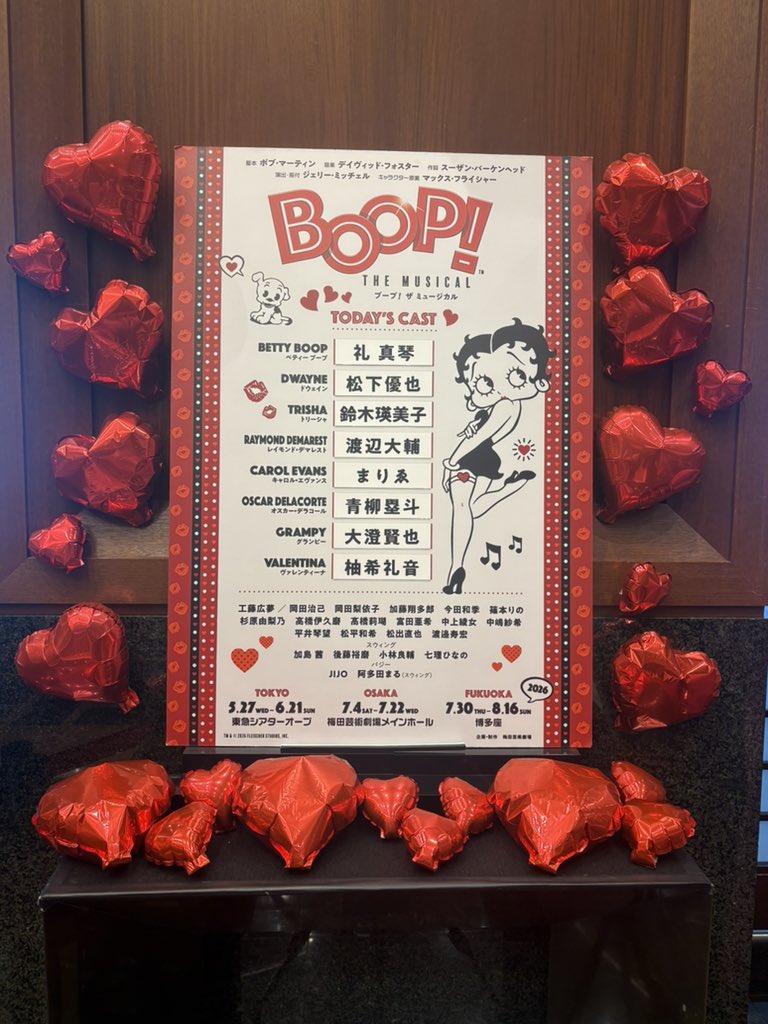 脚本 ボブ・マーティン 音楽 デイヴィッド・フォスター 作詞 スーザン・バーケンヘッド
演出・振付 ジェリー・ミッチェル キャラクター原案 マックス・フライシャー
BOOP!™
THE MUSICAL
ブープ! ザ ミュージカル
TODAY'S CAST
BETTY BOOP 礼 真琴
ベティー ブープ
DWAYNE 松下優也
ドウェイン
TRISHA 鈴木瑛美子
トリーシャ
RAYMOND DEMAREST 渡辺大輔
レイモンド・デマレスト
CAROL EVANS まりゑ
キャロル・エヴァンス
OSCAR DELACORTE 青柳塁斗
オスカー・デラコール
GRAMPY 大澄賢也
グランピー
VALENTINA 柚希礼音
ヴァレンティーナ
工藤広夢/岡田治己 岡田梨依子 加藤翔多郎 今田和季 篠本りの
杉原由梨乃 高橋伊久磨 高橋莉瑚 富田亜希 中上綾女 中嶋紗希
平井琴望 松平和希 松出直也 渡邉寿宏
スウィング
加島茜 後藤裕磨 小林良輔 七理ひなの
パジー
JIJO 阿多田まる(スウィング)
2026
TOKYO OSAKA FUKUOKA
5.27WED-6.21SUN 7.4SAT-7.22WED 7.30THU-8.16SUN
東急シアターオーブ 梅田芸術劇場メインホール 博多座
TM & © 2026 FLEISCHER STUDIOS, INC. 企画・制作 梅田芸術劇場